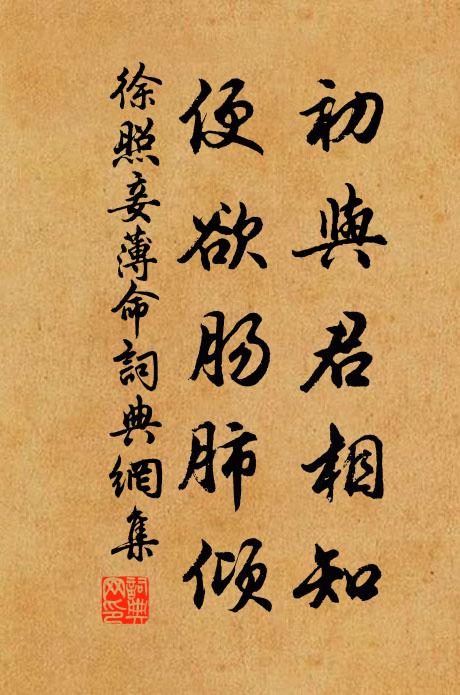 初與君相知
便欲肠肺傾
徐照妾薄命詞典網集
詞典网印